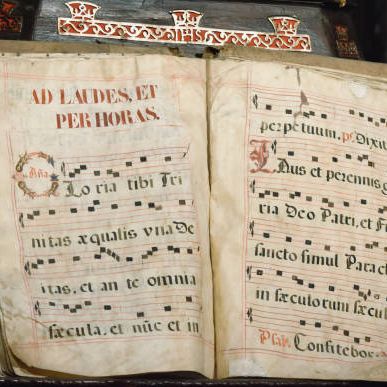 AD LAUDES, ET
PER HORAS.
Aña
Glo ria tibi Tri
nitas æqualis vna De
itas, et an te omnia
sæcula, et nũc et in
perpetuum. ps. Dixit
Laus et perennis
ria Deo Patri, et Fi
sancto simul Parac
in sæculorum sæcul
Psal. Confitebor